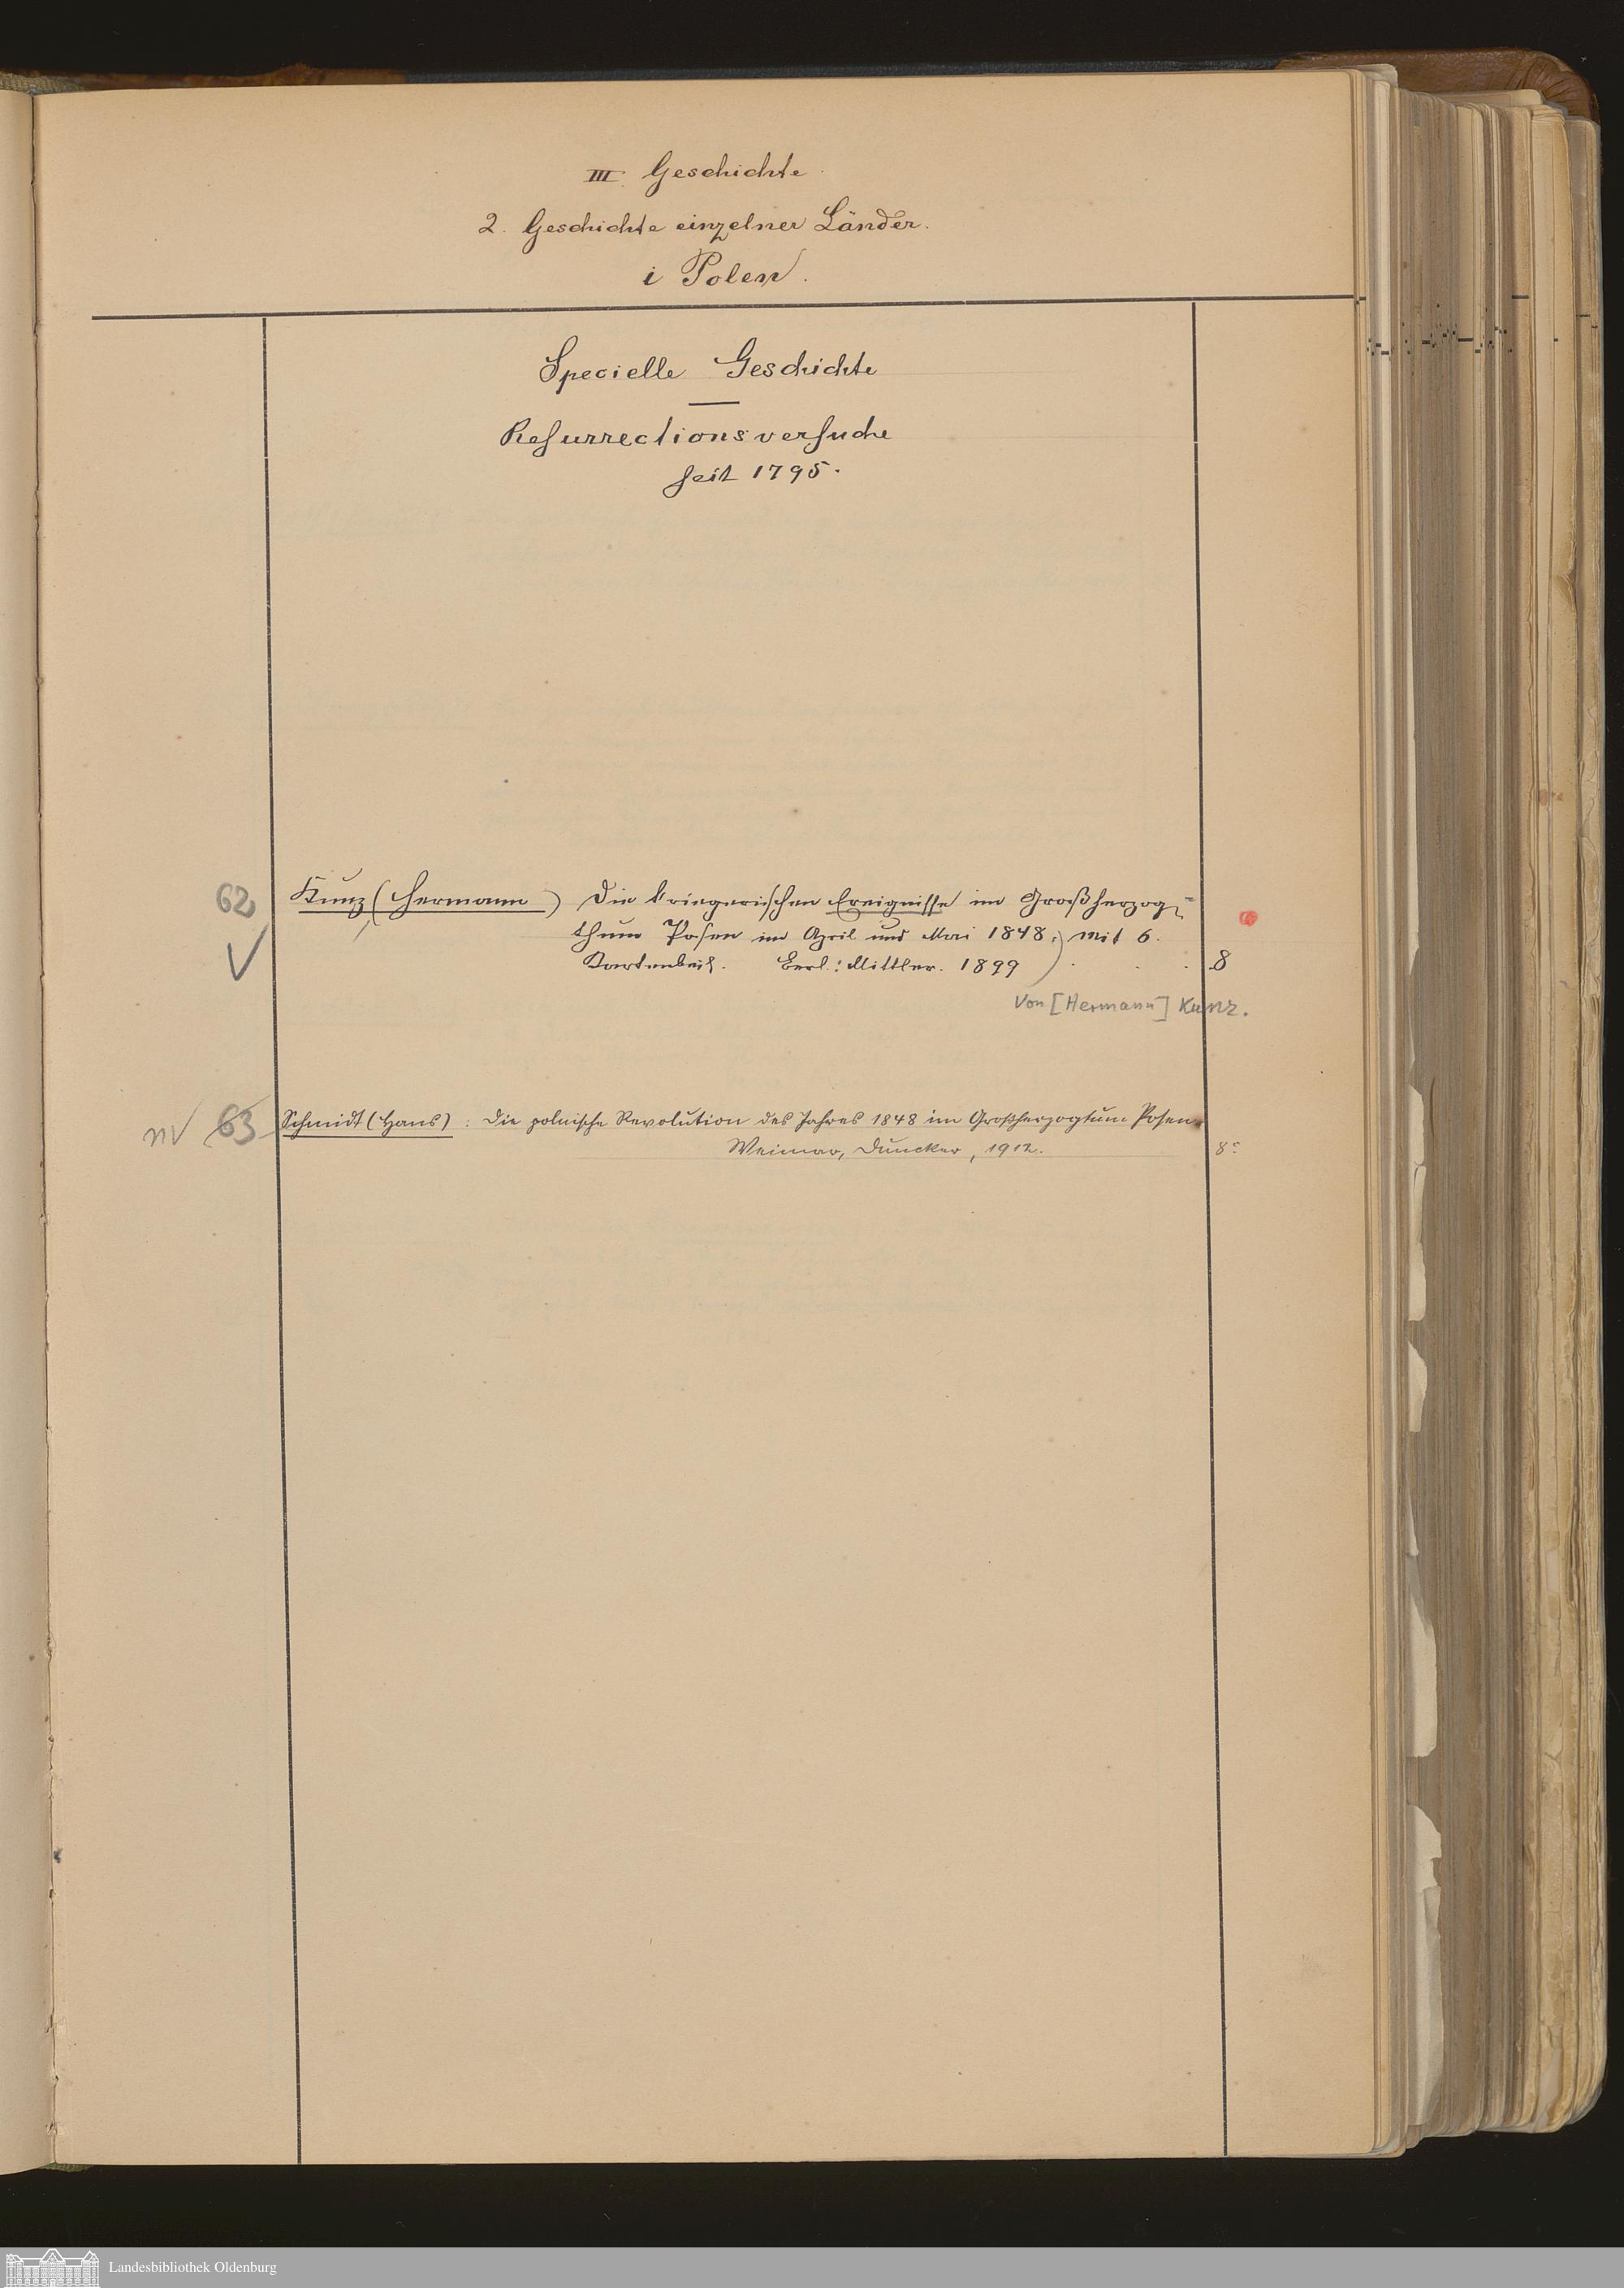 III. Geschichte
2. Geschichte einzelner Länder.
i Polen.
Specielle Geschichte
Resurrectionsversuche
seit 1795.
62 Kunz (Hermann) Die kriegerischen Ereignisse im Großherzog-
thum Posen im April und Mai 1848; mit 6.
V Kartenbeil. Berl.: Mittler. 1899 8
von [Hermann] Kunz.
nv 63 Schmidt (Hans): Die polnische Revolution des Jahres 1848 im Großherzogtum Posen.
Weimar, Duncker, 1912. 8°
Landesbibliothek Oldenburg